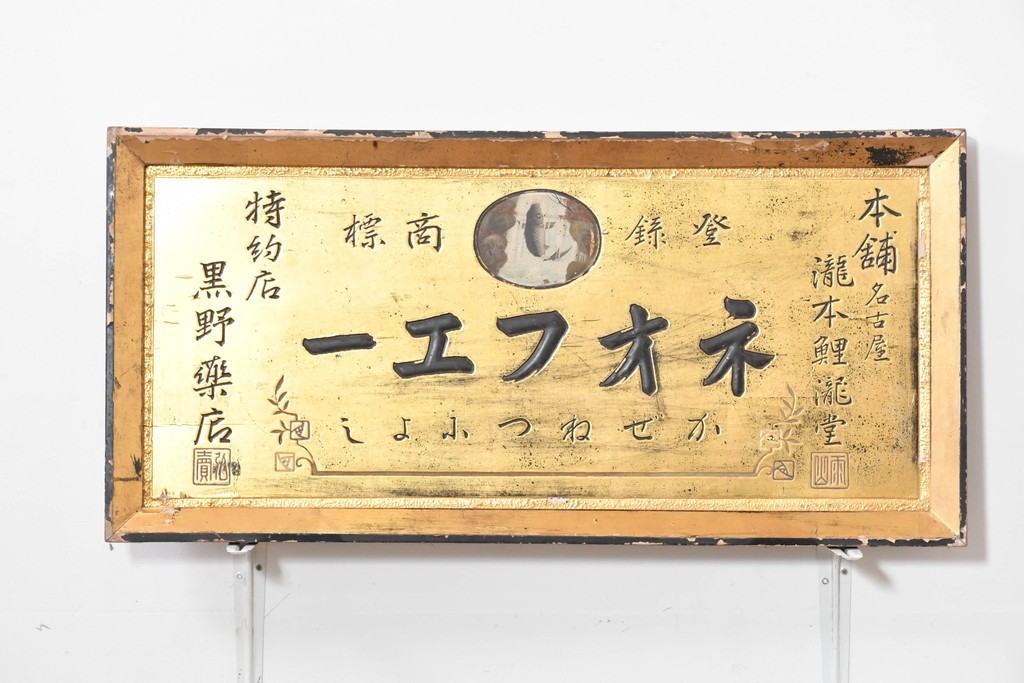 本舗
名古屋
瀧本鯉瀧堂
登録商標
ネオフエー
かぜねつふよし
特約店
黒野藥店